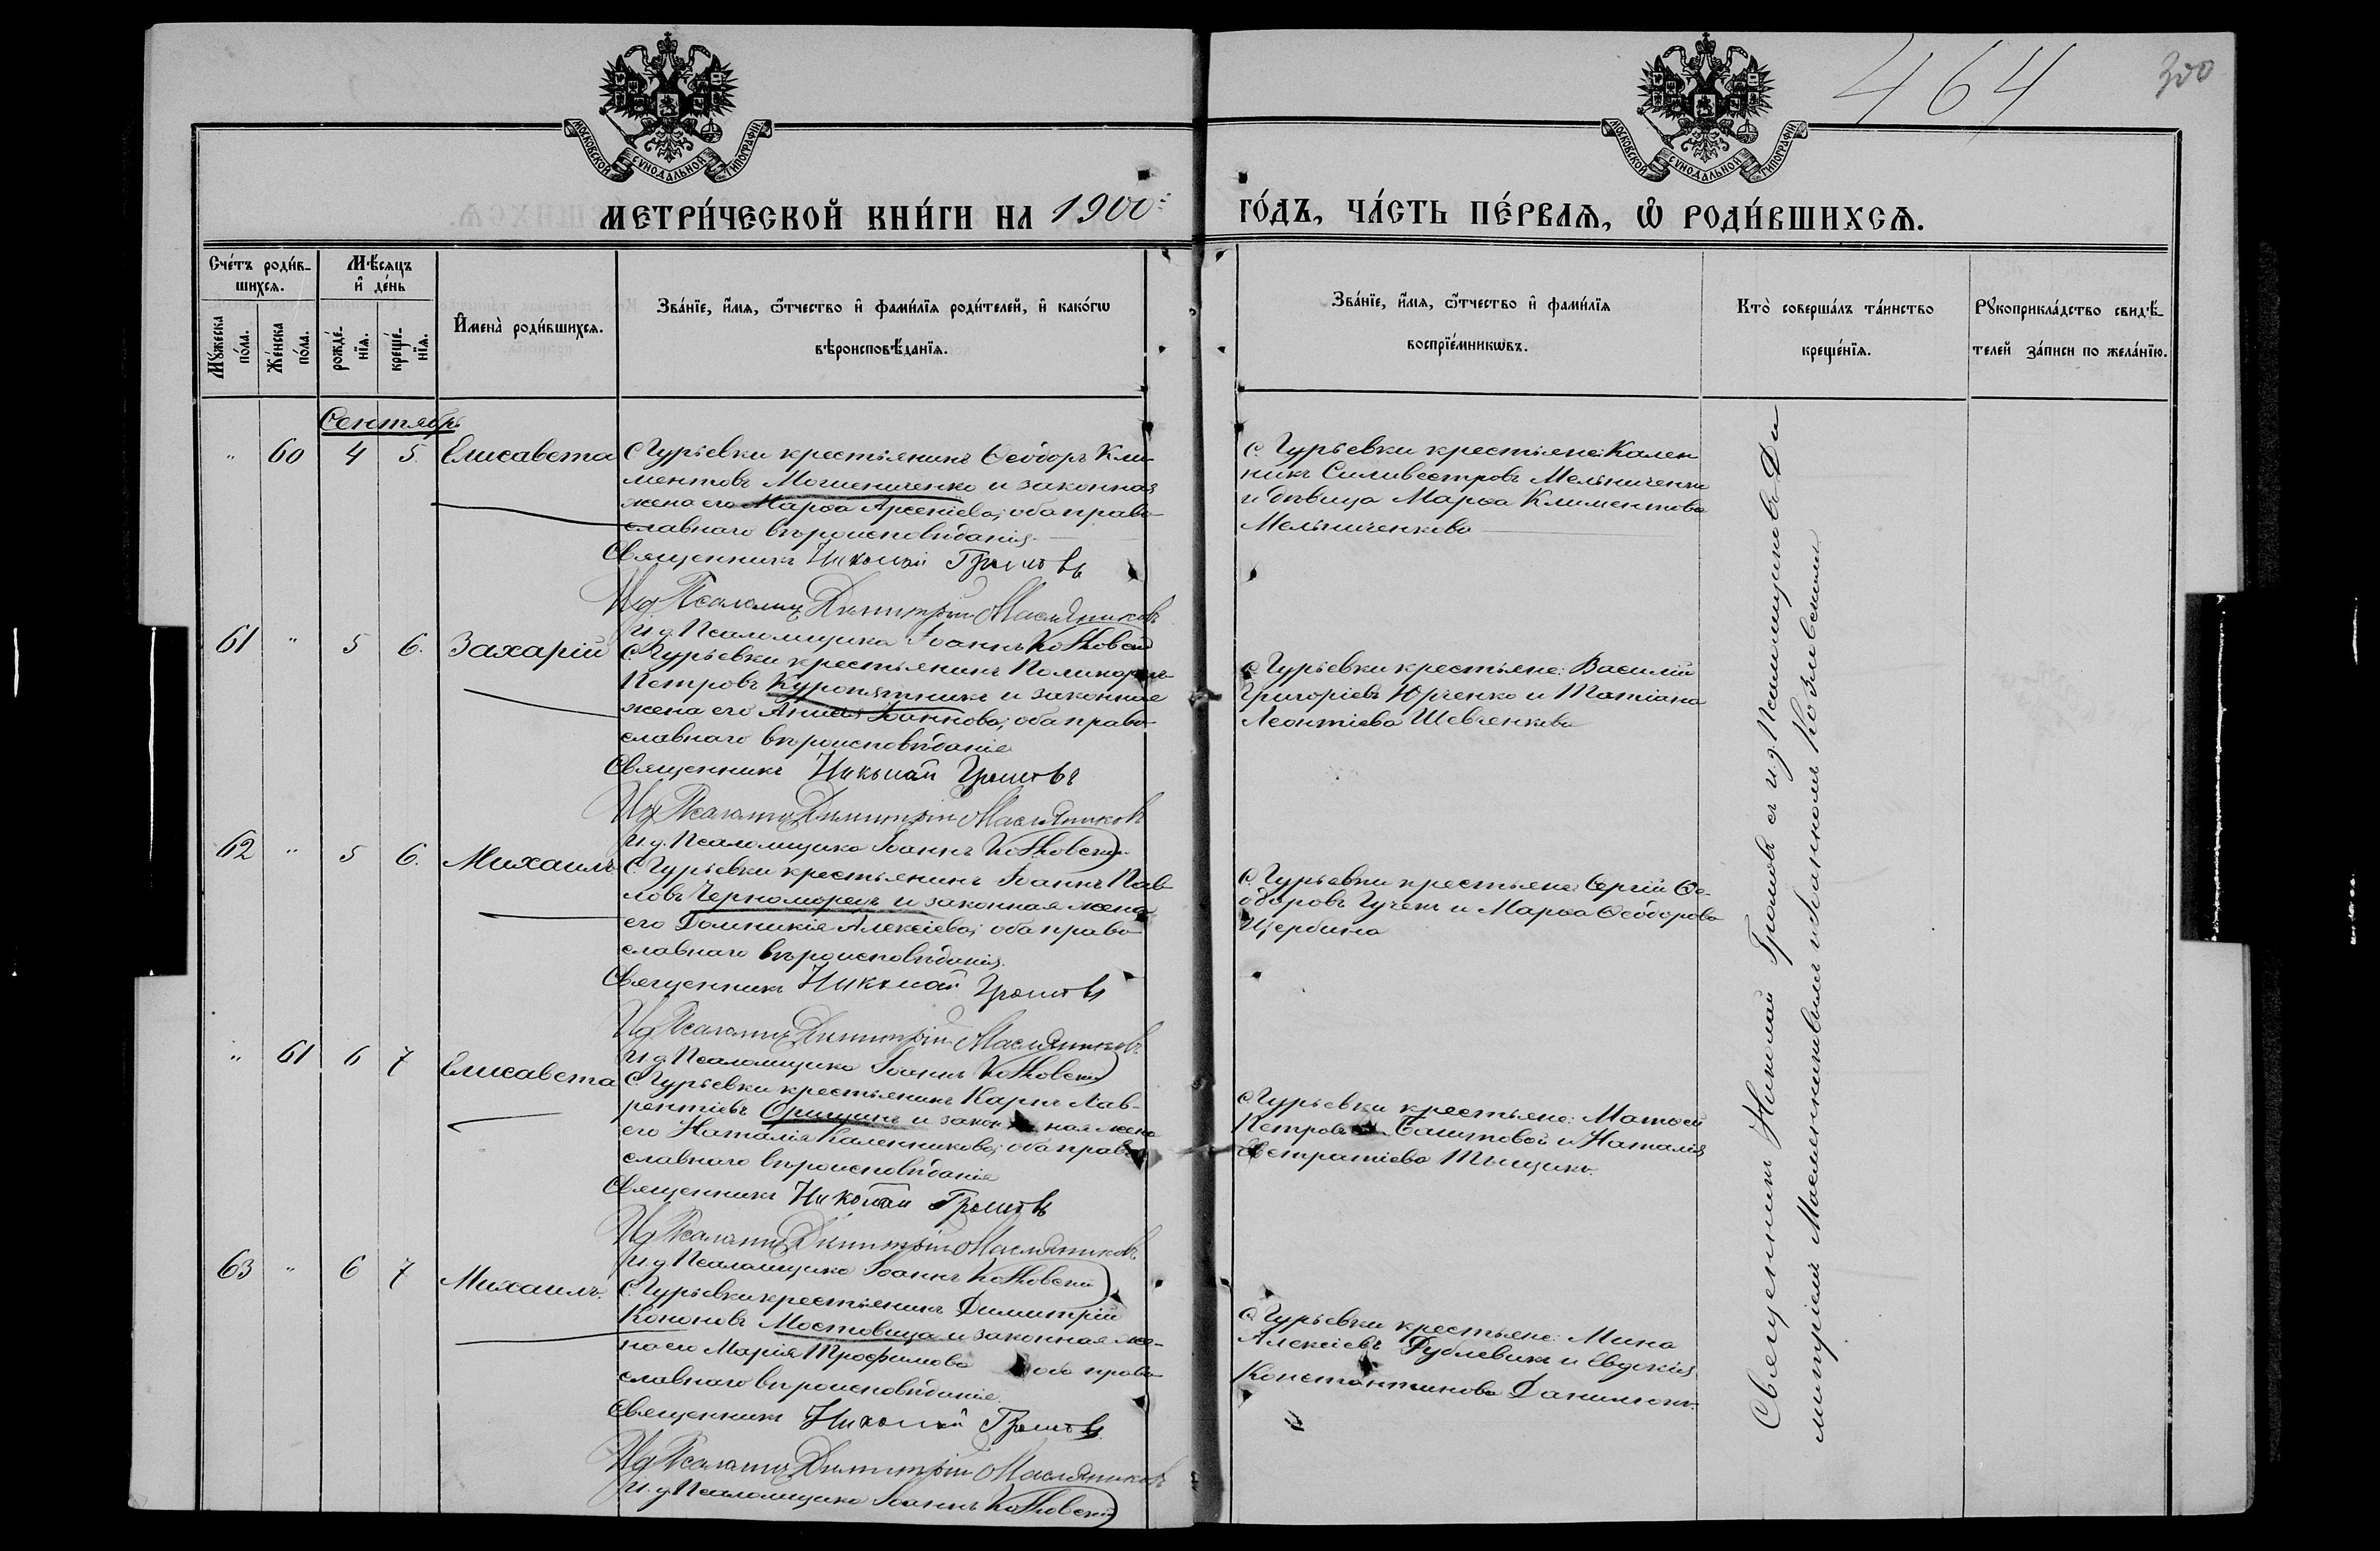 464
300
МОСКОВСКОЙ СѴНОДАЛЬНОЙ ТИПОГРАФІИ
МОСКОВСКОЙ СѴНОДАЛЬНОЙ ТИПОГРАФІИ
МЕТРИ́ЧЕСКОЙ КНИ́ГИ НА 1900: ГО́ДЪ, ЧА́СТЬ ПЕ́РВАѦ, Ѡ҆ РОДИ́ВШИХСѦ.
Сче́тъ роди́в-
шихсѧ.
Мѹ́жеска по́ла.
Же́нска по́ла.
Мѣ́сѧцъ и҆ де́нь
рожде́-нїѧ.
креще́-нїѧ.
И҆мена̀ роди́вшихсѧ.
Зва́нїе, и҆́мѧ, ѻ҆́тчество и҆ фами́лїѧ роди́телей, и҆ како́гѡ
вѣроисповѣ́данїѧ.
Зва́нїе, и҆́мѧ, ѻ҆́тчество и҆ фами́лїѧ
воспрїе́мникѡвъ.
Кто̀ соверша́лъ та́инство
креще́нїѧ.
Рꙋкоприкла́дство свидѣ́-
телей за́писи по жела́нїю.
Сентябрь
" 60 4 5. Елисавета
С. Гурьевки крестьянинъ Ѳеодоръ Кли-
ментовъ и законная
жена его Марѳа Арсеніева; оба право-
славнаго вѣроисповѣданія.
Священникъ Николай Громовъ
И д Псаломщ Димитрій Масляниковъ
И. д. Псаломщика Іоаннъ Козловскій
С. Гурьевки крестьяне: Кален
никъ Силивестровъ Мельниченко
и дѣвица Марѳа Климентова
Мельниченкова
61 " 5 6. Захарій
С. Гурьевки крестьянинъ Поликарпъ
Петровъ Куропятникъ и законная
жена его Іоаннова; оба право-
славнаго вѣроисповѣданія
Священникъ Николай Громовъ
И д Псаломщ Димитрій Масляниковъ
И. д. Псаломщика Іоаннъ Козловскій
С. Гурьевки крестьяне: Василій
Григоріевъ Юрченко и Татіана
Леонтіева Шевченкова
62 " 5 6. Михаилъ
С. Гурьевки крестьянинъ Іоаннъ Пав-
ловъ Черноморецъ и законная жена
его Домникія Алексіева; оба право-
славнаго вѣроисповѣданія.
Священникъ Николай Громовъ
И д Псаломщ Димитрій Масляниковъ
И. д. Псаломщика Іоаннъ Козловскій
С. Гурьевки крестьяне: Сергій Ѳе-
одоровъ и Марѳа Ѳеодорова
Щербина
" 61 6 7 Елисавета
С. Гурьевки крестьянинъ Карпъ Лав-
рентіевъ Орищинъ и законная жена
его Наталія Каленникова; оба право-
славнаго вѣроисповѣданія
Священникъ Николай Громовъ
И д Псаломщ Димитрій Масляниковъ
И д Псаломщика Іоаннъ Козловскій
С. Гурьевки крестьяне: Матѳей
Петровъ Баштовой и Наталія
Евстратіева
63 " 6 7 Михаилъ.
С. Гурьевки крестьянинъ Димитрій
Кононовъ Мостовица и законная же-
на его Марія Трофимова оба право-
славнаго вѣроисповѣданія.
Священникъ Николай Громовъ
И д Псаломщ Димитрій Масляниковъ
И. д. Псаломщика Іоаннъ Козловскій
С. Гурьевки крестьяне: Мина
Алексіевъ и Евдокія
Константинова Данилюкъ.
Священникъ Николай Громовъ съ и. д. Псаломщиковъ Ди
митріемъ Маслениковымъ и Іоанномъ Козловскимъ